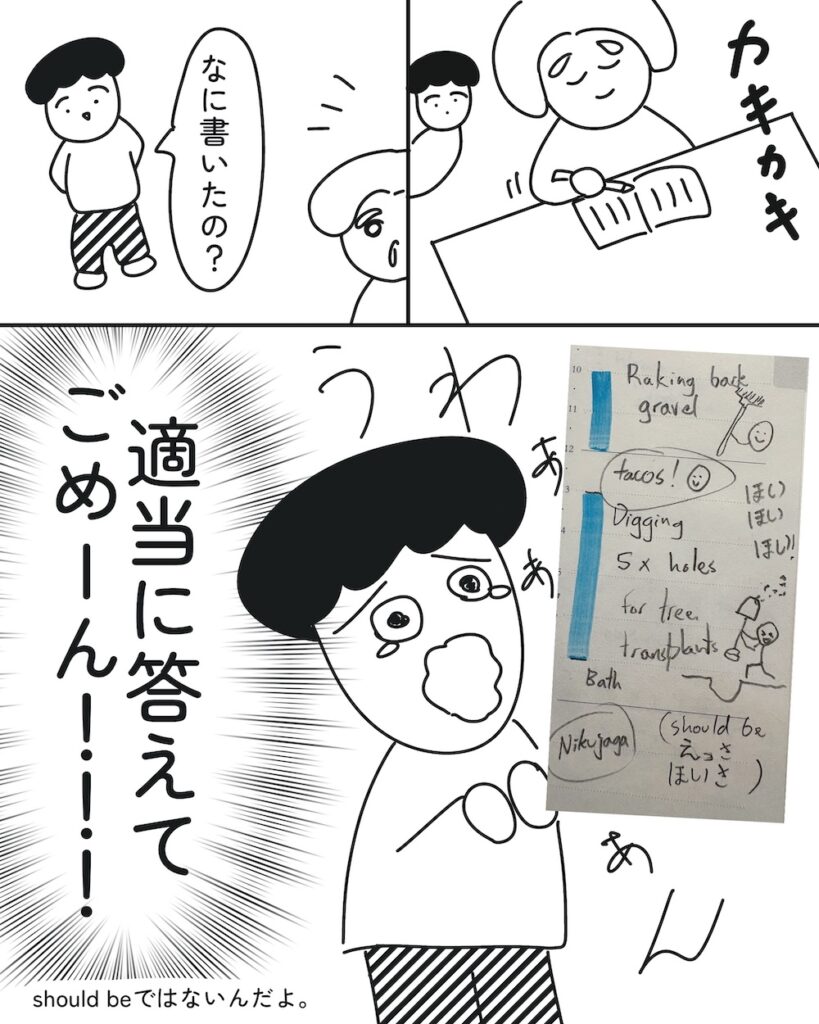 カキカキ
なに書いたの?
うわぁぁぁん
適当に答えて
ごめーん!!!!
10
Raking back
gravel
11
12
tacos!
3
ほい
ほい
ほい!
Digging
4
5 x holes
for tree
transplants
Bath
Nikujaga
(should be
えっさ
ほいさ)
should beではないんだよ。